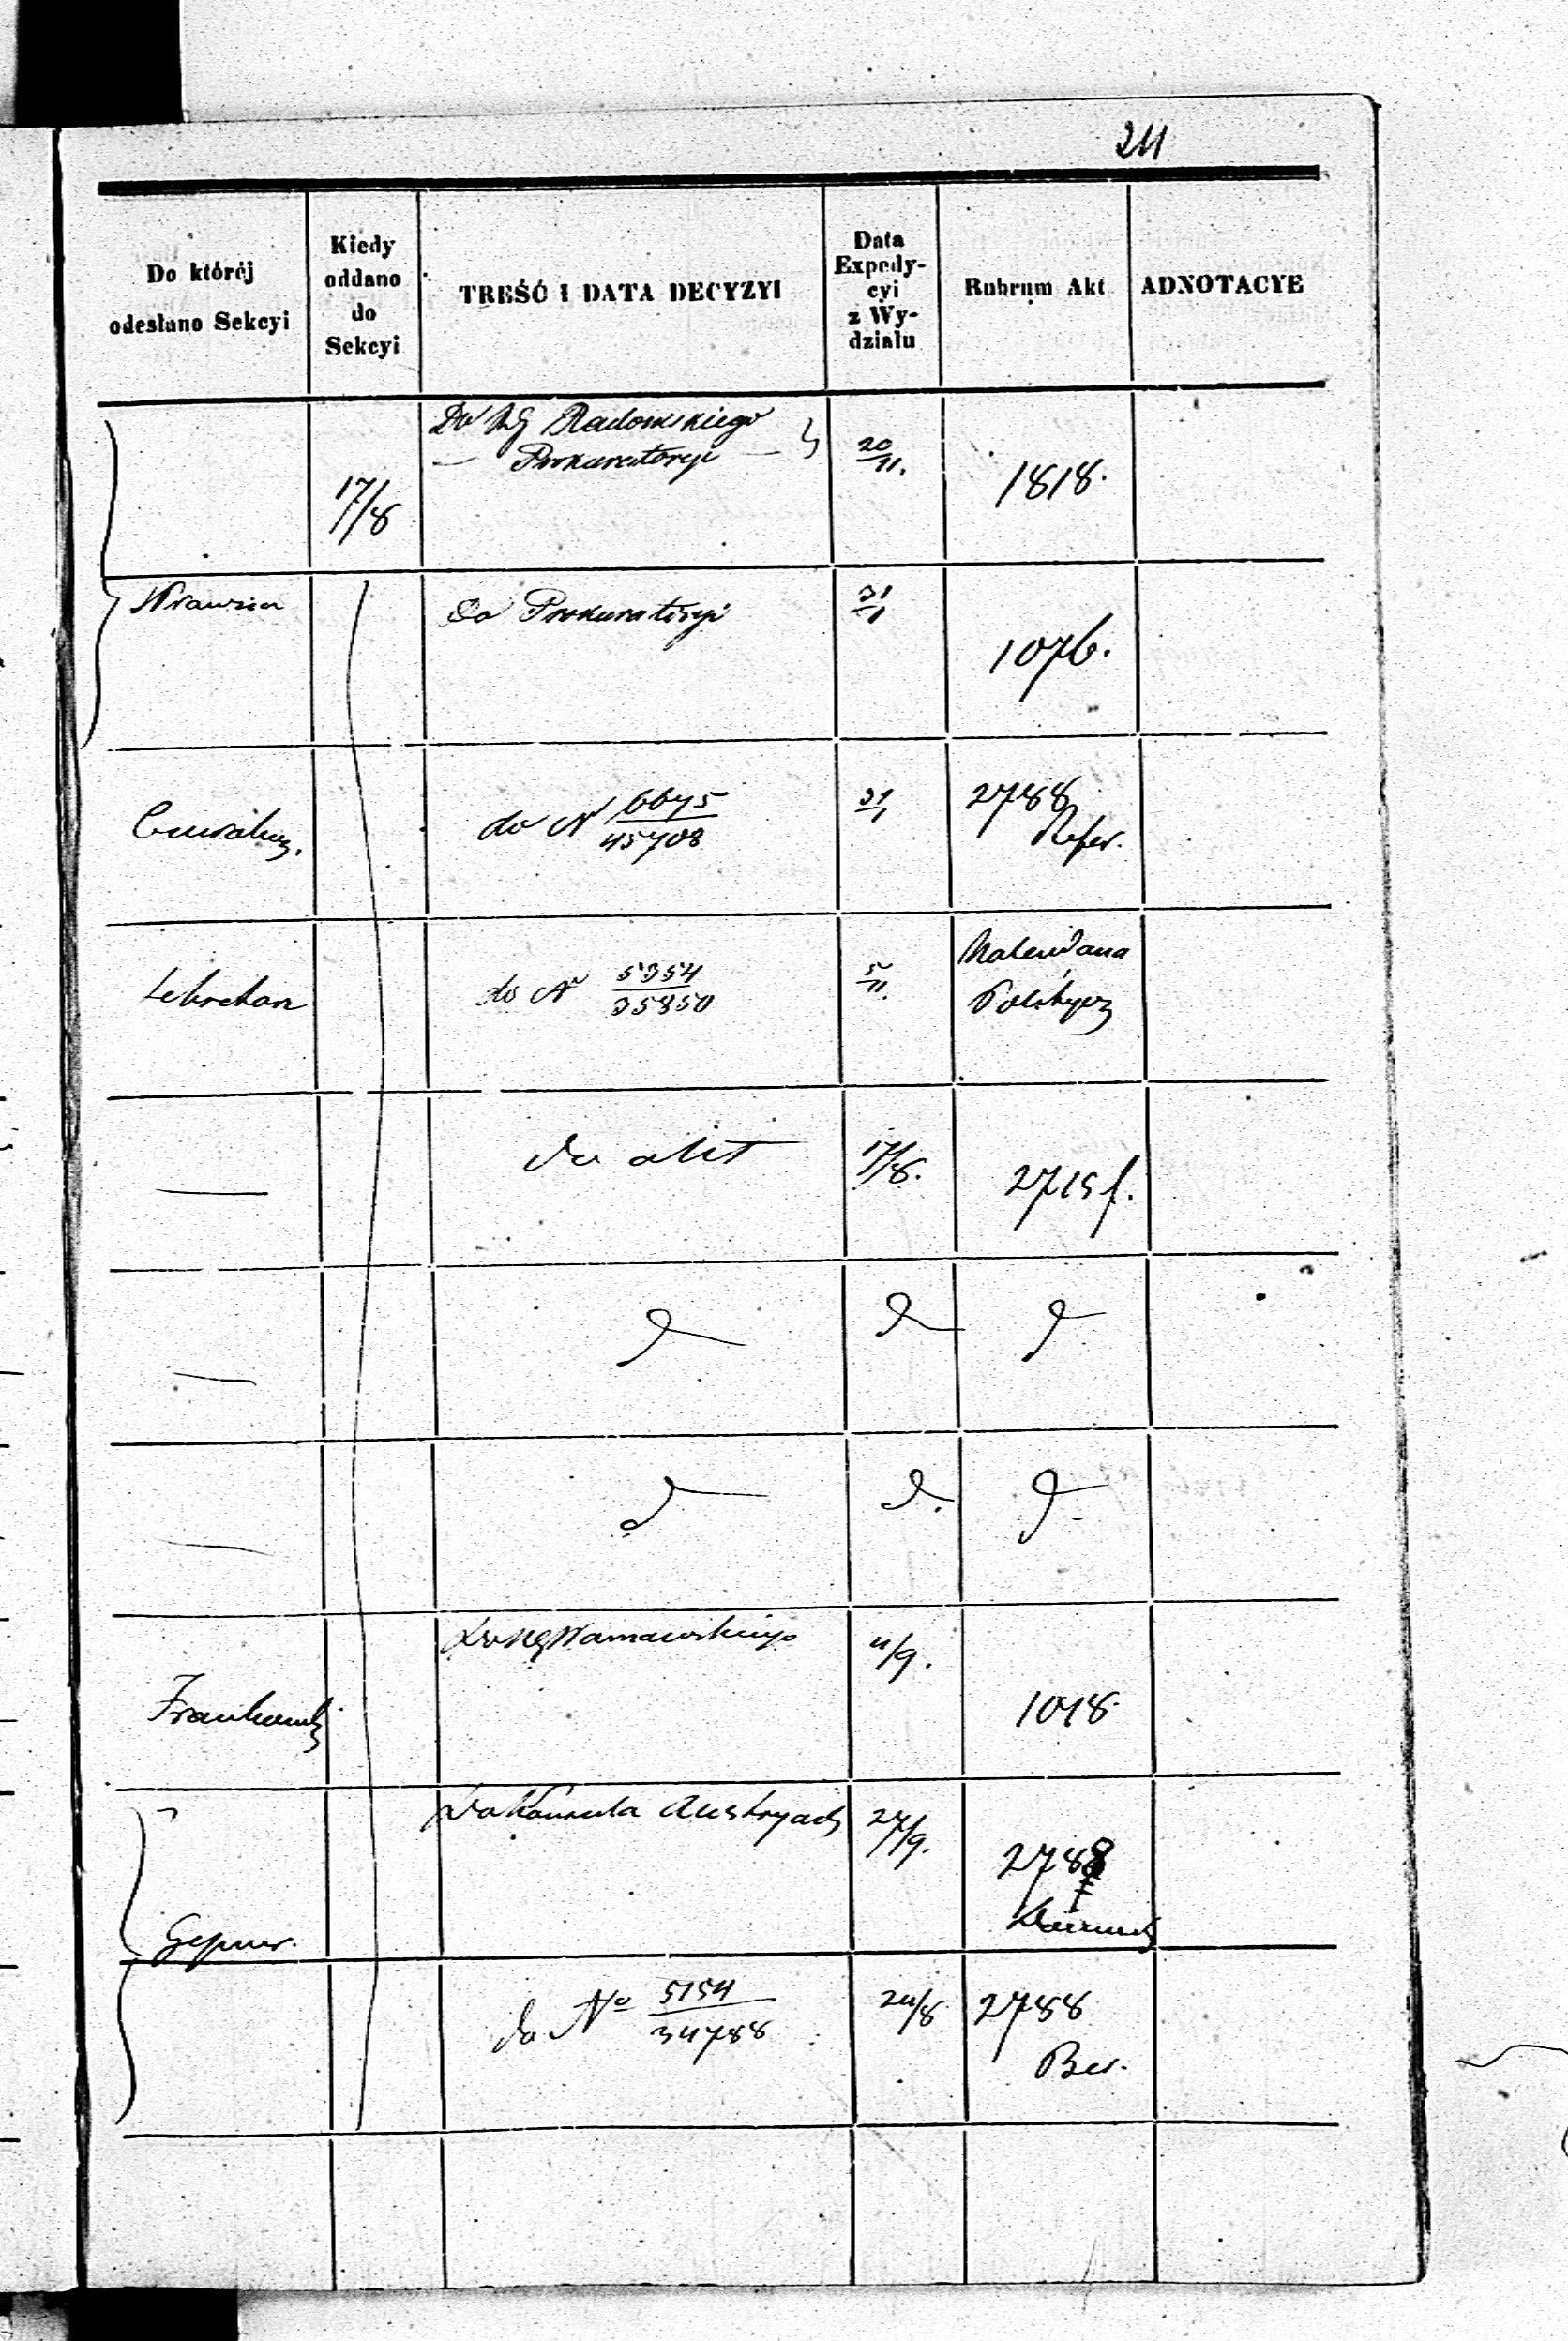 211
Do któréj
odesłano Sekcyi
Kiedy
oddano
do
Sekcyi
TREŚĆ I DATA DECYZYI
Data
Expedy-
cyi
z Wy-
działu
Rubrum Akt
ADNOTACYE
17/8
Do RG Radomskiego
— Prokuratoryi —
20/11.
1818.
Do Prokuratoryi
31/1
1076.
do N 6675/45708
31/1
2788
Refer.
Sekretarz
do N 5354/35850
5/11.
do akt
17/8.
2715 f.
—
d
d
d
—
d
d.
d.
—
Do RG Warszawskiego
11/9.
1018.
Do Konsula Austryack
27/9.
2788
Gepner.
do No 5154/34788
24/8
2788
Ber.